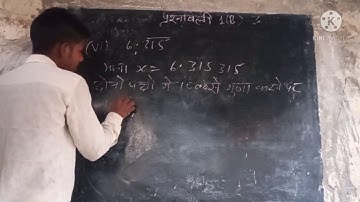 प्रश्नावली 1(B) 3
(vi) 6.315
माना x = 6.315315
दोनो पक्षो मे 1000 से गुणा करने पर
KINEMASTER